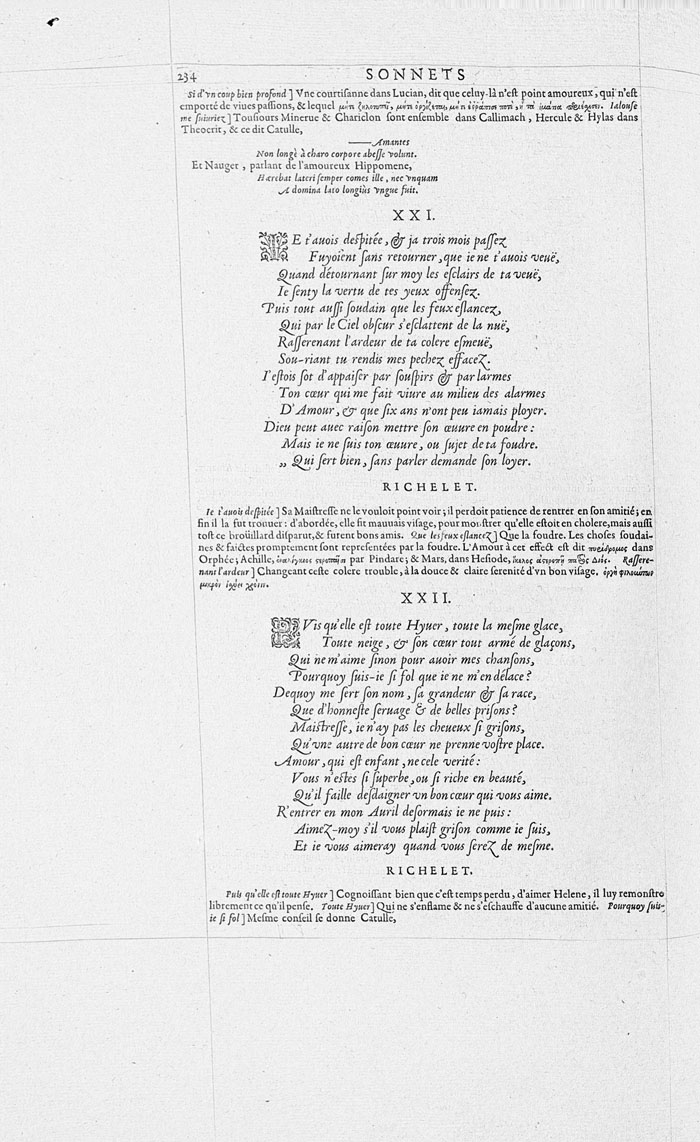 234 SONNETS
Si d'vn coup bien profond ] Vne courtisanne dans Lucian, dit que celuy-là n'est point amoureux, qui n'est
emporté de viues passions, & lequel Ialouse
me suiuriez ] Tousiours Minerue & Chariclon sont ensemble dans Callimach, Hercule & Hylas dans
Theocrit, & ce dit Catulle,
——Amantes
Non longè à charo corpore abesse volunt.
Et Nauger, parlant de l'amoureux Hippomene,
Hærebat lateri semper comes ille, nec vnquam
A domina lato longiùs vngue fuit.
XXI.
IE t'auois despitée, & ja trois mois passez
Fuyoient sans retourner, que ie ne t'auois veuë,
Quand détournant sur moy les esclairs de ta veuë,
Ie senty la vertu de tes yeux offensez.
Puis tout aussi soudain que les feux eslancez,
Qui par le Ciel obscur s'esclattent de la nuë,
Rasserenant l'ardeur de ta colere esmeuë,
Sou-riant tu rendis mes pechez effacez.
I'estois sot d'appaiser par souspirs & par larmes
Ton cœur qui me fait viure au milieu des alarmes
D'Amour, & que six ans n'ont peu iamais ployer.
Dieu peut auec raison mettre son œuure en poudre:
Mais ie ne suis ton œuure, ou sujet de ta foudre.
„ Qui sert bien, sans parler demande son loyer.
RICHELET.
Ie t'auois despitée ] Sa Maistresse ne le vouloit point voir; il perdoit patience de rentrer en son amitié; en
fin il la fut trouuer: d'abordée, elle fit mauuais visage, pour monstrer qu'elle estoit en cholere, mais aussi
tost ce broüillard disparut, & furent bons amis. Que les feux eslancez ] Que la foudre. Les choses soudai-
nes & faictes promptement sont representées par la foudre. L'Amour à cet effect est dit dans
Orphée; Achille, par Pindare; & Mars, dans Hesiode, Rassere-
nant l'ardeur ] Changeant ceste colere trouble, à la douce & claire serenité d'vn bon visage.
XXII.
PVis qu'elle est toute Hyuer, toute la mesme glace,
Toute neige, & son cœur tout armé de glaçons,
Qui ne m'aime sinon pour auoir mes chansons,
Pourquoy suis-ie si fol que ie ne m'en délace?
Dequoy me sert son nom, sa grandeur & sa race,
Que d'honneste seruage & de belles prisons?
Maistresse, ie n'ay pas les cheueux si grisons,
Qu'vne autre de bon cœur ne prenne vostre place.
Amour, qui est enfant, ne cele verité:
Vous n'estes si superbe, ou si riche en beauté,
Qu'il faille desdaigner vn bon cœur qui vous aime.
R'entrer en mon Auril desormais ie ne puis:
Aimez-moy s'il vous plaist grison comme ie suis,
Et ie vous aimeray quand vous serez de mesme.
RICHELET.
Puis qu'elle est toute Hyuer ] Cognoissant bien que c'est temps perdu, d'aimer Helene, il luy remonstre
librement ce qu'il pense. Toute Hyuer ] Qui ne s'enflame & ne s'eschauffe d'aucune amitié. Pourquoy suis-
ie si fol ] Mesme conseil se donne Catulle,